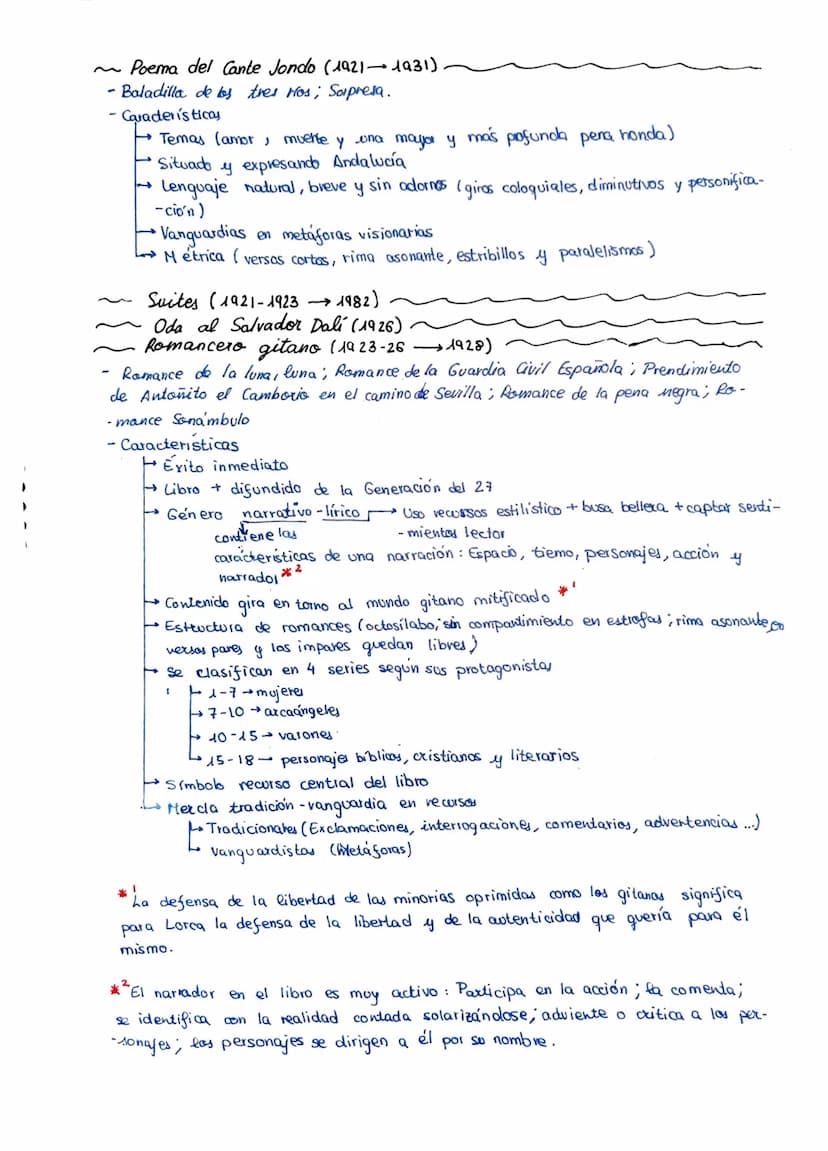 Poema del Cante Jondo (1921→1931)
- Baladilla de los tres ríos; Sorpresa.
- Características
↳ Temas (amor, muerte y una mayor y más profunda pena honda)
→ Situado y expresando Andalucía
→ Lenguaje natural, breve y sin adornos (giros coloquiales, diminutivos y personifica-
-ción)
→ Vanguardias en metáforas visionarias
↳ Métrica (versos cortos, rima asonante, estribillos y paralelismos)
Suites (1921-1923 → 1982)
Oda al Salvador Dalí (1926)
Romancero gitano (1923-26 → 1928)
- Romance de la luna, luna; Romance de la Guardia Civil Española; Prendimiento
de Antoñito el Camborio en el camino de Sevilla; Romance de la pena negra; Ro-
-mance Sonámbulo
- Características
↳ Éxito inmediato
→ Libro + difundido de la Generación del 27
→ Género narrativo-lírico → Uso recursos estilístico + busa belleza + captar senti-
contiene las -mientos lector
características de una narración: Espacio, tiemo, personajes, acción y
narrador *2
→ Contenido gira en torno al mundo gitano mitificado *1
→ Estructura de romances (octosílabo; sin compartimiento en estrofas; rima asonante en
versos pares y los impares quedan libres)
→ Se clasifican en 4 series según sus protagonistas
↳ 1-7 → mujeres
→ 7-10 → arcaángeles
→ 10-15 → varones
↳ 15-18 → personajes bíblicos, cristianos y literarios
→ Símbolo recurso central del libro
↳ Mezcla tradición-vanguardia en recursos
↳ Tradicionales (Exclamaciones, interrogaciones, comentarios, advertencias ...)
↳ Vanguardistas (Metáforas)
*1 La defensa de la libertad de las minorias oprimidas como los gitanos significa
para Lorca la defensa de la libertad y de la autenticidad que quería para él
mismo.
*2 El narrador en el libro es muy activo: Participa en la acción; la comenta;
se identifica con la realidad contada solarizándolose; adviente o critica a los per-
-sonajes; los personajes se dirigen a él por su nombre.